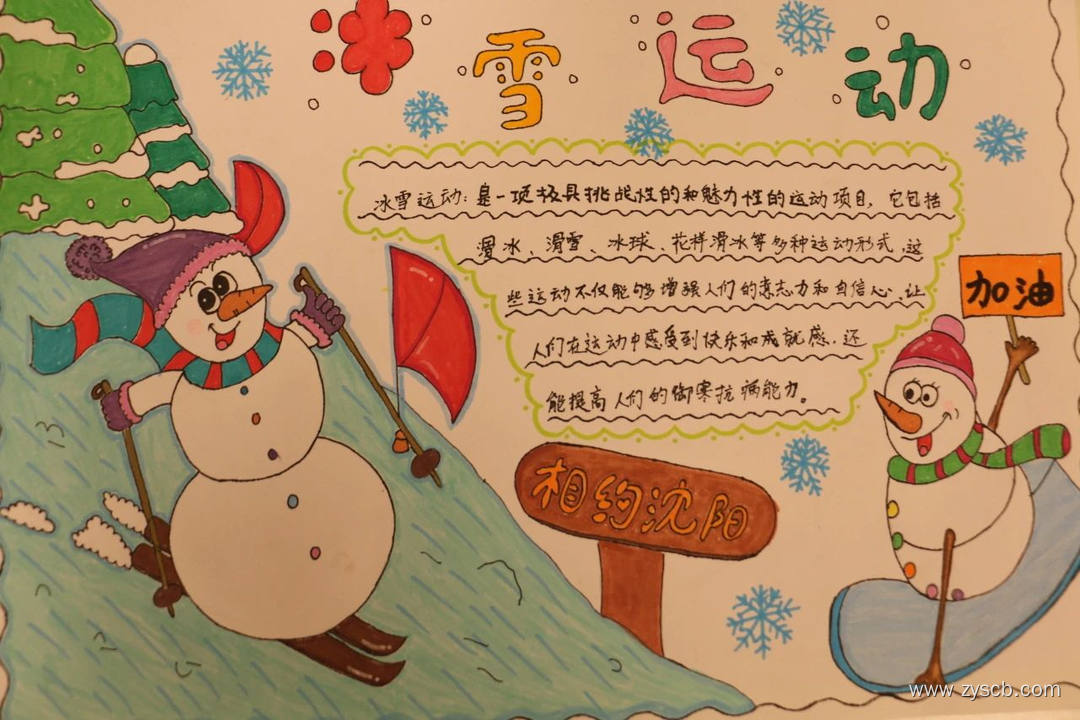 冰雪运动
冰雪运动：是一项极具挑战性的和魅力性的运动项目，它包括
滑冰、滑雪、冰球、花样滑冰等多种运动形式，这
些运动不仅能够增强人们的意志力和自信心，让
人们在运动中感受到快乐和成就感，还
能提高人们的御寒抗病能力。
加油
相约沈阳
www.zyscb.com